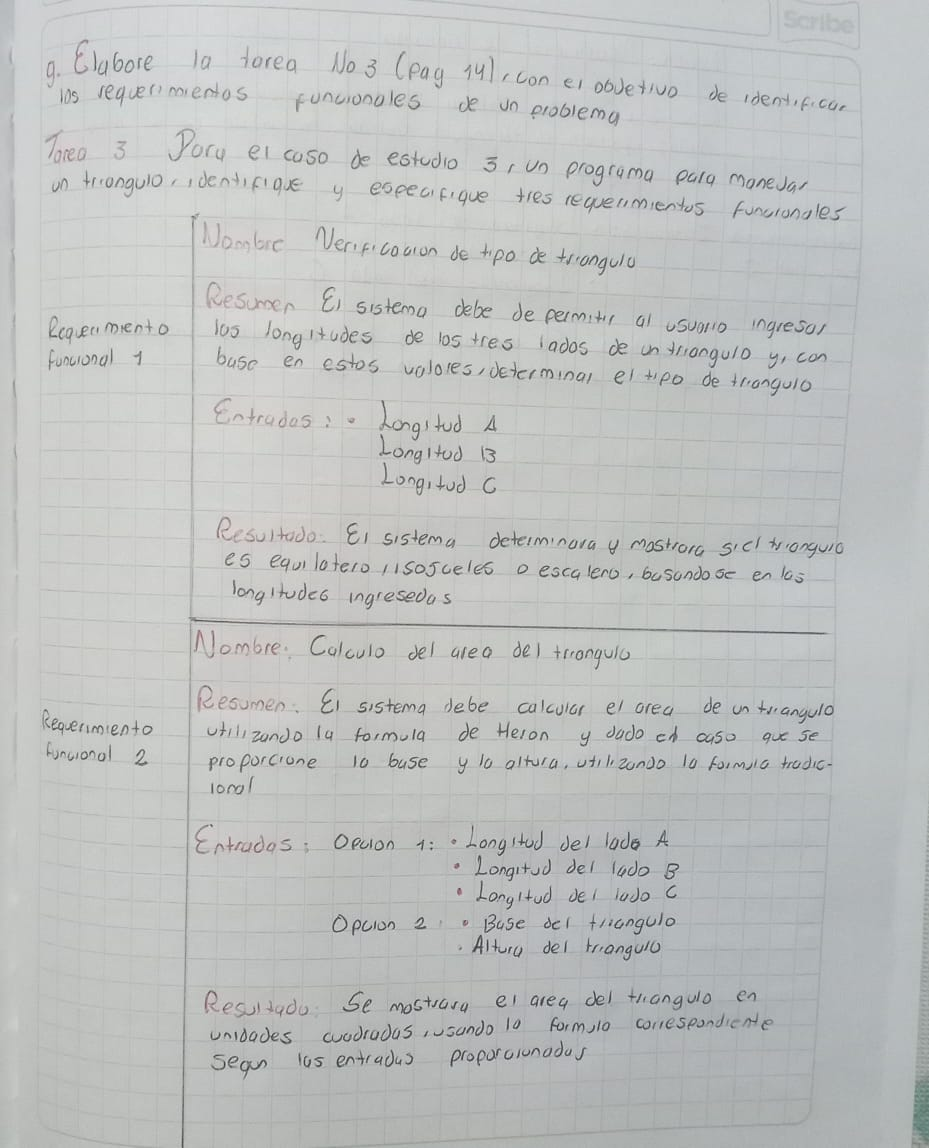 Scribe
g. Elabore la tarea No 3 (pag 14), con el objetivo de identificar
los requerimientos funcionales de un problema
Tarea 3 Para el caso de estudio 3, un programa para manejar
un triangulo, identifique y especifique tres requerimientos funcionales
Nombre Verificacion de tipo de triangulo
Resumen El sistema debe de permitir al usuario ingresar
las longitudes de los tres lados de un triangulo y, con
base en estos valores, determinar el tipo de triangulo
Requerimiento
funcional 1
Entradas: • Longitud A
Longitud B
Longitud C
Resultado: El sistema determinara y mostrara si el triangulo
es equilatero, isosceles o escaleno, basandose en las
longitudes ingresedas
Nombre: Calculo del area del triangulo
Resumen: El sistema debe calcular el area de un triangulo
utilizando la formula de Heron y dado el caso que se
proporcione la base y la altura, utilizando la formula tradic-
ional
Requerimiento
funcional 2
Entradas: Opcion 1: • Longitud del lado A
• Longitud del lado B
• Longitud del lado C
Opcion 2: • Base del triangulo
• Altura del triangulo
Resultado: Se mostrara el area del triangulo en
unidades cuadradas, usando la formula correspondiente
segun las entradas proporcionadas